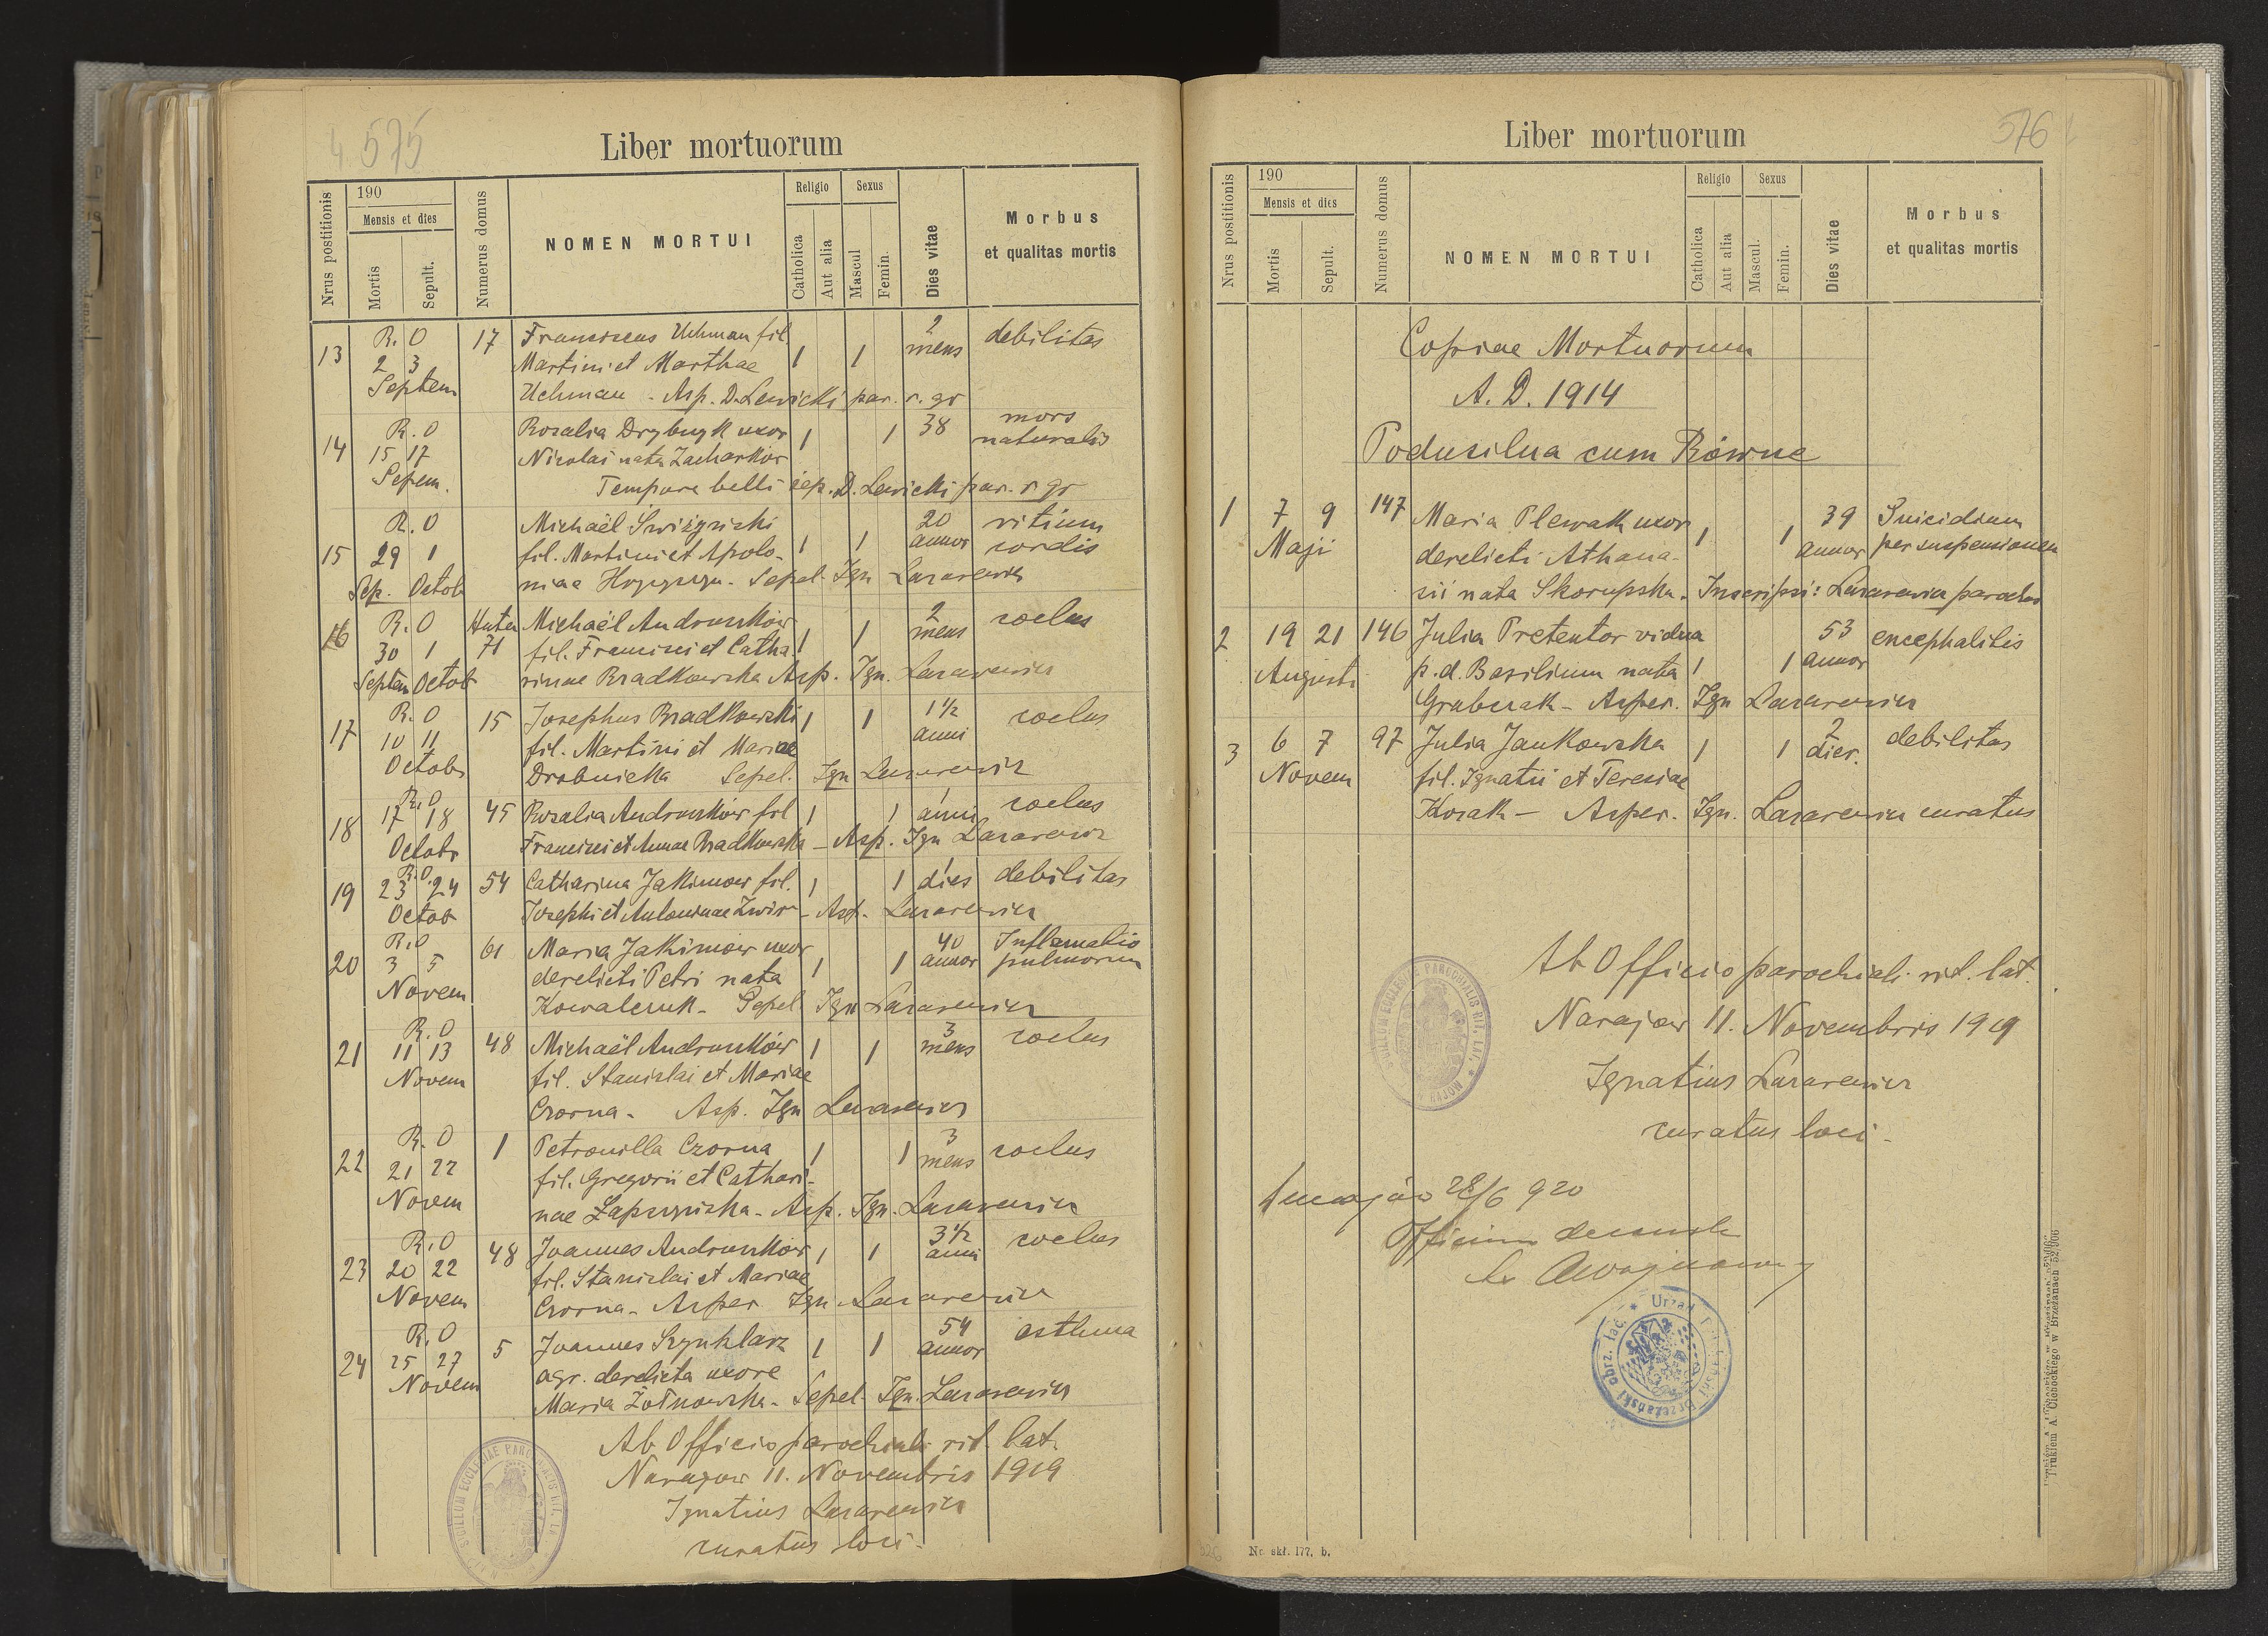 4 575
Liber mortuorum
Nrus postitionis
190
Mensis et dies
Mortis
Sepult.
Numerus domus
NOMEN MORTUI
Religio
Catholica
Aut alia
Sexus
Mascul
Femin.
Dies vitae
Morbus
et qualitas mortis
R. O 17 Franciscus Uchman fil. 2 debilitas
13 2 3 Martini et Marthae 1 1 mens
Septem Uchman - Asp. D. Lewicki par. r. gr
R. O Rosalia Drybuyk uxor 1 1 38 mors
14 15 17 Nicolai nata Zacharkow naturalis
Sepem. Tempore belli sep. D. Lewicki par. r gr
R. O Michaël 20 vitium
15 29 1 fil. Martini et Apolo- 1 1 annor cordis
Sep. Octob niae - Sepel. Ign Lazarewicz
R. O Huta Michaël Andruszków 2 coelus
16 30 1 71 fil. Francisci et Catha 1 1 mens
Septem Octob rinae Bradkowska Asp. Ign. Lazarewicz
R. O 15 Josephus Bradkowski 1 1 1½ coelus
17 10 11 fil. Martini et Mariae anni
Octobr Drobnicka Sepel. Ign Lazarewicz
R. O
18 17 18 45 Rosalia Andruszków fil 1 1 1 anni coelus
Octobr Francisci et Annae Bradkowska - Asp. Ign Lazarewicz
R. O.
19 23 24 54 Catharina Jakimow fil. 1 1 1 dies debilitas
Octob Josephi et Antoninae - Asp. Lazarewicz
R. O 61 Maria Jakimow uxor 40 Inflamatio
20 3 5 derelicti Petri nata 1 1 annor pulmorum
Novem Kowalczuk - Sepel. Ign Lazarewicz
R. O 3 coelus
21 11 13 48 Michaël Andruszków 1 1 mens
Novem fil. Stanislai et Mariae
Czorna - Asp. Ign Lazarewicz
R. O 1 Petronilla Czorna 1 1 3 coelus
22 21 22 fil. Gregorii et Cathari- mens
Novem nae Łapszyńska - Asp. Ign. Lazarewicz
R. O 48 Joannes Andruszków 1 1 3½ coelus
23 20 22 fil. Stanislai et Mariae anni
Novem Czorna - Asper Ign. Lazarewicz
R. O 5 Joannes Szynklarz 1 1 54 asthma
24 25 27 agr. derelicta uxore annor
Novem Maria Żołnowska - Sepel. Ign. Lazarewicz
Ab Officio parochiali rit. lat.
Narajow 11. Novembris 1919
Ignatius Lazarewicz
curatus loci.
SIGILLUM ECCLESIAE PAROCHIALIS RIT. LAT.
576
Liber mortuorum
Nrus postitionis
190
Mensis et dies
Mortis
Sepult.
Numerus domus
NOMEN MORTUI
Religio
Catholica
Aut alia
Sexus
Mascul.
Femin.
Dies vitae
Morbus
et qualitas mortis
Copiae Mortuorum
A. D. 1914
Podusilna cum Równe
1 7 9 147 Maria Plewak uxor 1 1 39 Suicidium
Maji derelicti Athana- annor per suspensionem
sii nata Skorupska. Inscripsi: Lazarewicz parochus
2 19 21 146 Julia Pretentor vidua 53 encephalitis
Augusti p. d. Basilium nata 1 1 annor
Grabczak - Asper. Ign Lazarewicz
3 6 7 97 Julia Jankowska 1 1 2 dier. debilitas
Novem fil. Ignatii et Teresiae
Kozak - Asper. Ign. Lazarewicz curatus
Ab Officio parochiali rit. lat.
Narajow 11. Novembris 1919
Ignatius Lazarewicz
curatus loci -
SIGILLUM ECCLESIAE PAROCHIALIS RIT. LAT.
28/6 920
Officium
Urząd
Brzeżański obrz. łać.
Nr. skł. 177. b.
Drukiem A. Cichockiego w Brzeżanach 52/906